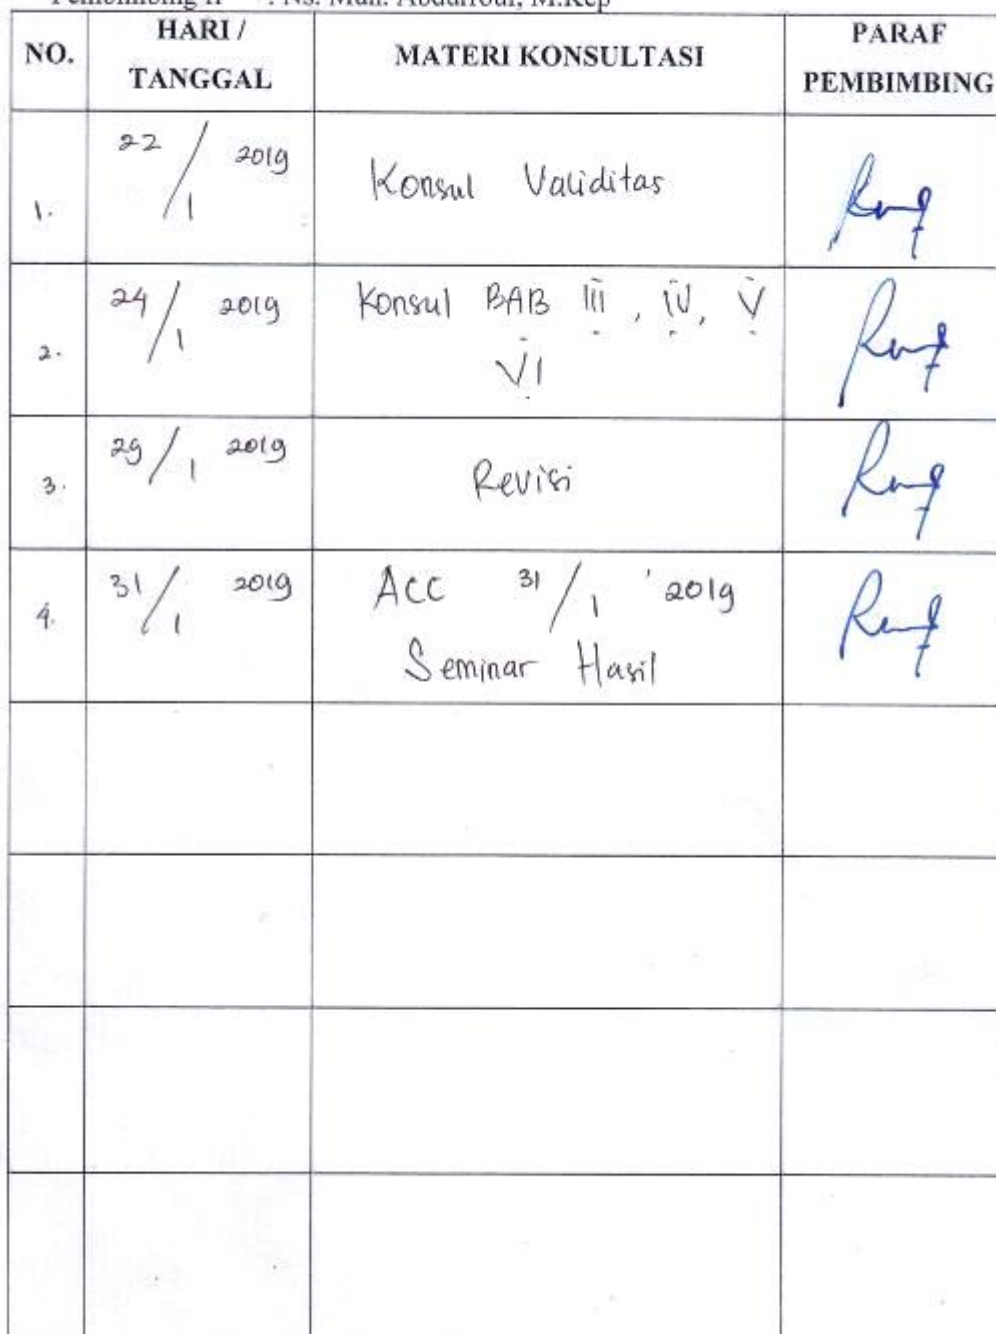 : Ns. Muh. Abdurrouf, M.Kep
NO.
HARI /
TANGGAL
MATERI KONSULTASI
PARAF
PEMBIMBING
1.
22/1 2019
Konsul Validitas
2.
24/1 2019
Konsul BAB III, IV, V
VI
3.
29/1 2019
Revisi
4.
31/1 2019
ACC 31/1 '2019
Seminar Hasil